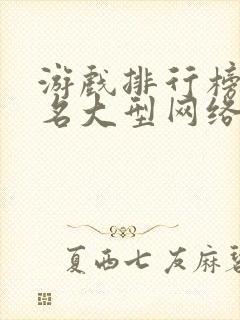 游戏排行榜
名大型网络
夏西七友麻